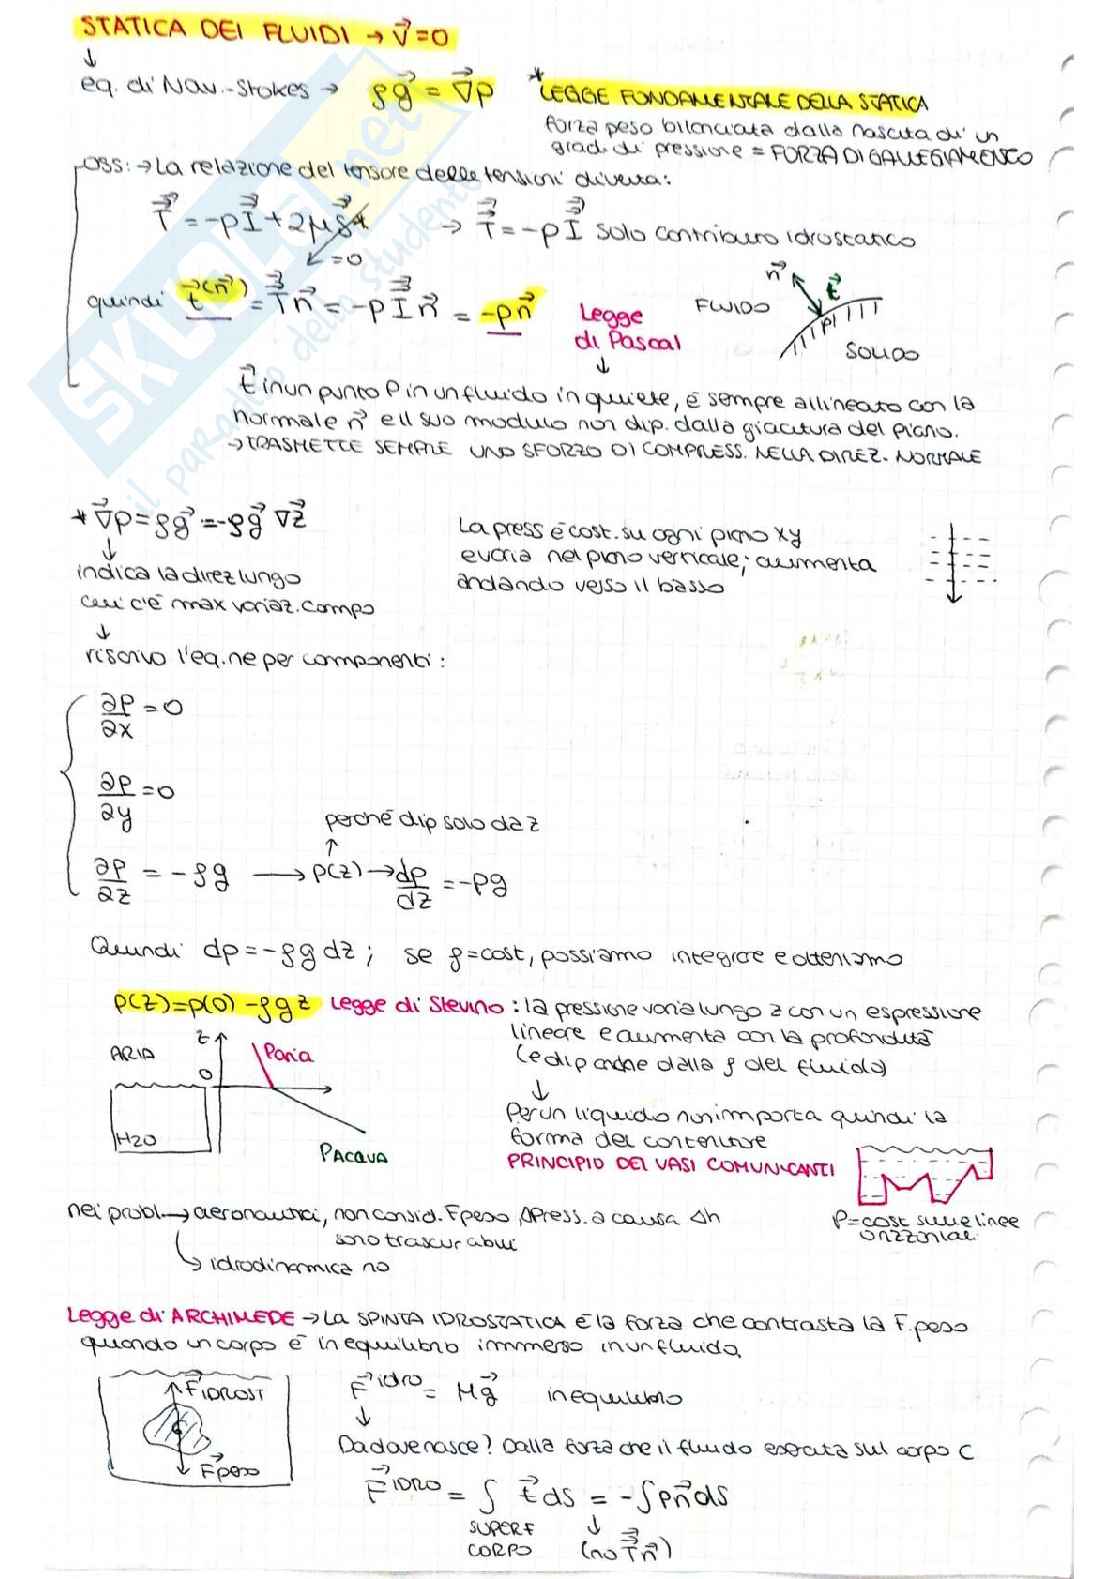 STATICA DEI FLUIDI → v⃗=0
↓
eq. di Nav.-Stokes → ρg⃗ = ∇⃗p * LEGGE FONDAMENTALE DELLA STATICA
forza peso bilanciata dalla nascita di un
grad. di pressione = FORZA DI GALLEGIAMENTO
OSS: → La relazione del tensore delle tensioni diventa:
T = -pI + 2μS* → T = -pI solo contributo idrostatico
=0
quindi t⃗(n⃗) = Tn⃗ = -pIn⃗ = -pn⃗
Legge
di Pascal
↓
n⃗ t⃗
FLUIDO
P
SOLIDO
t⃗ in un punto P in un fluido in quiete, è sempre allineato con la
normale n⃗ e il suo modulo non dip. dalla giacitura del piano.
→ TRASMETTE SEMPRE UNO SFORZO DI COMPRESS. NELLA DIREZ. NORMALE
* ∇⃗p = ρg⃗ = -ρg⃗ ∇z⃗
↓
indica la direz lungo
cui c'è max variaz. campo
↓
riscrivo l'eq.ne per componenti:
La press è cost. su ogni piano xy
e varia nel piano verticale; aumenta
andando verso il basso
∂p/∂x = 0
∂p/∂y = 0
perché dip solo da z
↑
∂p/∂z = -ρg → p(z) → dp/dz = -ρg
Quindi dp = -ρg dz ; se ρ=cost, possiamo integrare e otteniamo
p(z)=p(0) -ρgz Legge di Stevino : la pressione varia lungo z con un espressione
lineare e aumenta con la profondità
(e dip anche dalla ρ del fluido)
↓
Per un liquido non importa quindi la
forma del contenitore
PRINCIPIO DEI VASI COMUNICANTI
P=cost sulle linee
orizzontali
ARIA
z
0
Paria
H2O
PACQUA
nei probl. → aeronautici, non consid. Fpeso, ΔPress. a causa Δh
sono trascurabili
↳ idrodinamica no
Legge di ARCHIMEDE → La SPINTA IDROSTATICA È la forza che contrasta la F.peso
quando un corpo è in equilibrio immerso in un fluido.
F⃗IDROST
C
F⃗peso
F⃗idro = Mg⃗ in equilibrio
↓
Da dove nasce? Dalla forza che il fluido esercita sul corpo C
F⃗IDRO = ∫ t⃗ ds = -∫pn⃗ds
SUPERF
CORPO
↓
(no Tn⃗)
SKUOLA.net
il paradiso dello studente